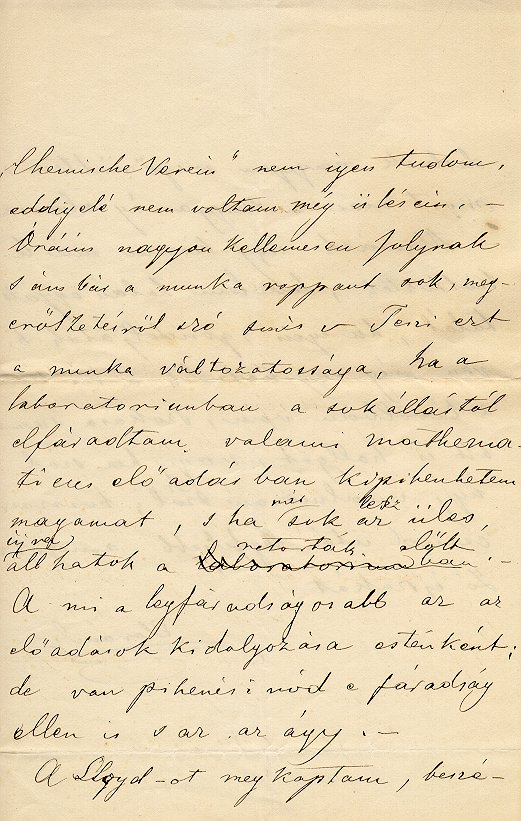 „Chemische Verein" nem igen tudom,
eddigelé nem voltam még ülésein. –
Óráim nagyon kellemesen folynak
s ám bár a munka roppant sok, meg-
erőltetésről szó sincs. Teszi ezt
a munka változatossága, ha a
laboratoriumban a sok állástól
elfáradtam, valami mathema-
ticus előadásban kipihenhetem
magamat, s ha már sok lesz az ülés,
újra állhatok a retorták előtt. –
A mi a legfáradságosabb az az
előadások kidolgozása esténként;
de van pihenési mód e fáradság
ellen is s az az ágy. –
A Lloyd-ot megkaptam, beszé-